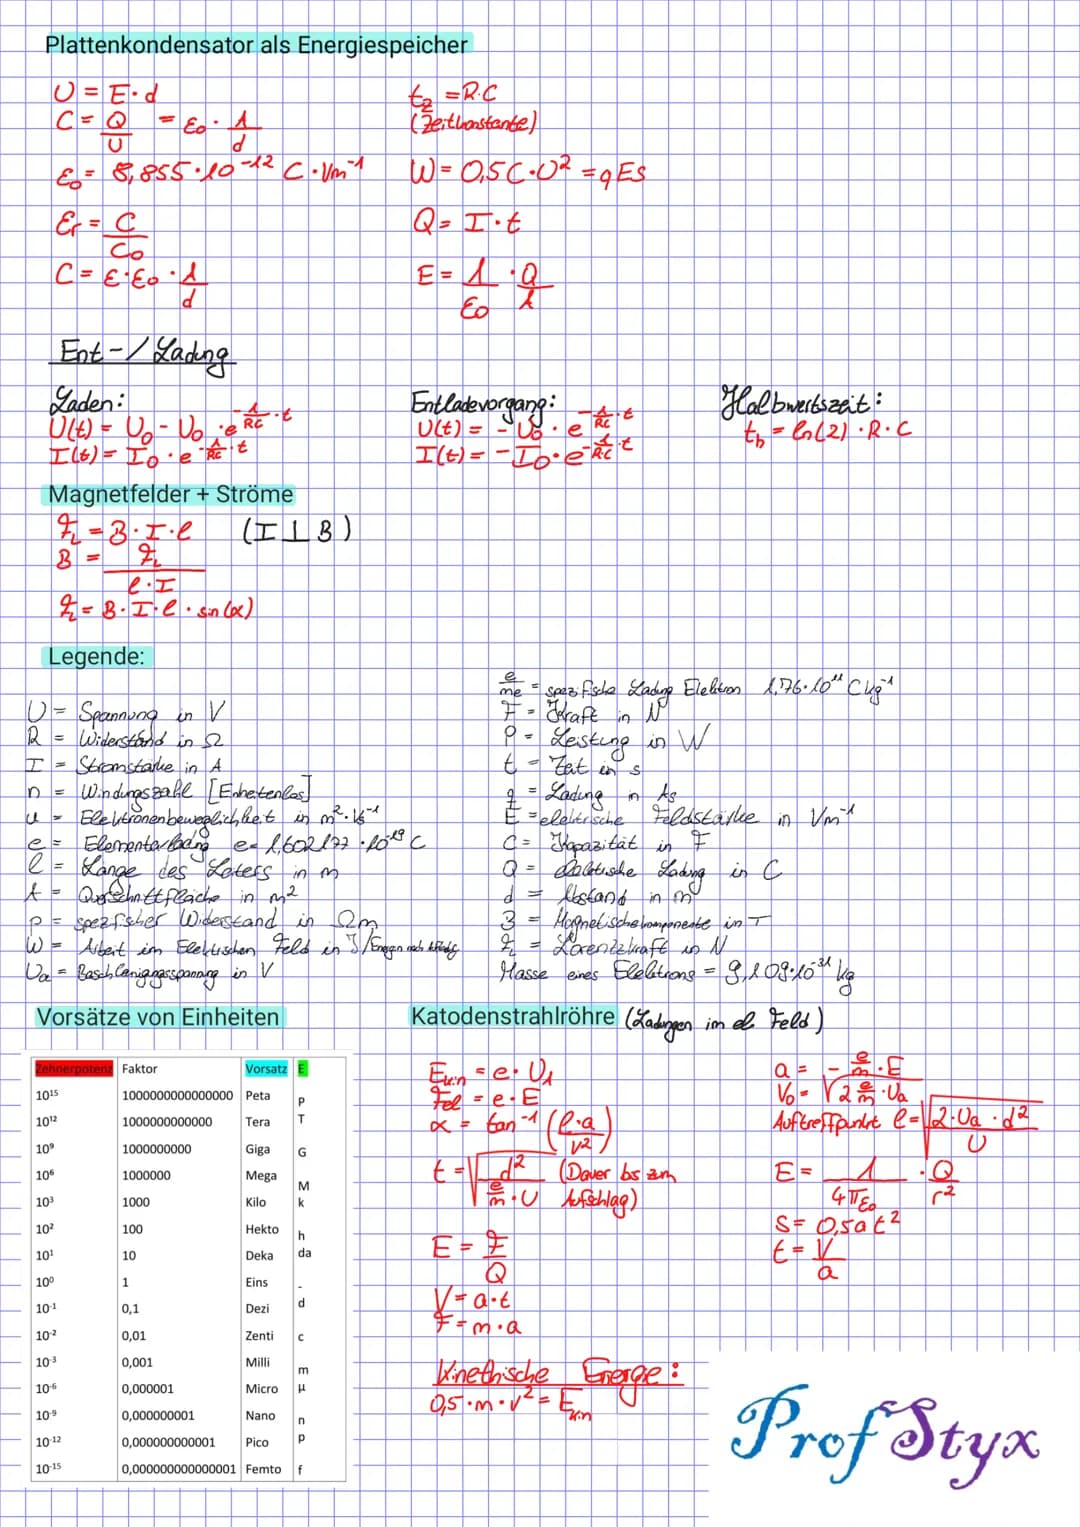 Plattenkondensator als Energiespeicher
U = E·d
C = Q/U = ε₀ · A/d
ε₀ = 8,855·10⁻¹² C·Vm⁻¹
εr = C/C₀
C = ε·ε₀ · A/d
t_z = R·C
(Zeitkonstante)
W = 0,5 C·U² = qEs
Q = I·t
E = 1/ε₀ · Q/A
Ent-/Ladung
Laden:
U(t) = U₀ - U₀ · e^(-1/RC · t)
I(t) = I₀ · e^(-1/RC · t)
Entladevorgang:
U(t) = - U₀ · e^(-1/RC · t)
I(t) = - I₀ · e^(-1/R·C · t)
Halbwertszeit:
t_h = ln(2) · R · C
Magnetfelder + Ströme
F_L = B · I · l (I ⊥ B)
B = F_L/(l · I)
F_L = B · I · l · sin(α)
Legende:
U = Spannung in V
R = Widerstand in Ω
I = Stromstärke in A
n = Windungszahl [Einheitenlos]
u = Elektronenbeweglichkeit in m²·Vs⁻¹
e = Elementarladung e = 1,602177 · 10⁻¹⁹ C
l = Länge des Leiters in m
A = Querschnittfläche in m²
ρ = spezfischer Widerstand in Ωm
W = Arbeit im Elektrischen Feld in J/Energien nach
Ua = Beschleunigungsspannung in V
e/me = spezifische Ladung Elektron 1,76·10¹¹ C kg⁻¹
F = Kraft in N
P = Leistung in W
t = Zeit in s
q = Ladung in As
E = elektrische Feldstärke in Vm⁻¹
C = Kapazität in F
Q = elektrische Ladung in C
d = Abstand in m
B = Magnetischekomponente in T
F_L = Lorentzkraft in N
Masse eines Elektrons = 9,109·10⁻³¹ kg
Vorsätze von Einheiten
Zehnerpotenz Faktor Vorsatz E
10¹⁵ 1000000000000000 Peta P
10¹² 1000000000000 Tera T
10⁹ 1000000000 Giga G
10⁶ 1000000 Mega M
10³ 1000 Kilo k
10² 100 Hekto h
10¹ 10 Deka da
10⁰ 1 Eins -
10⁻¹ 0,1 Dezi d
10⁻² 0,01 Zenti c
10⁻³ 0,001 Milli m
10⁻⁶ 0,000001 Micro μ
10⁻⁹ 0,000000001 Nano n
10⁻¹² 0,000000000001 Pico p
10⁻¹⁵ 0,000000000000001 Femto f
Katodenstrahlröhre (Ladungen im el. Feld)
E_kin = e · U_A
F_el = e · E
α = tan⁻¹ (l·a/v²)
t = √(d²/(e/m · U)) (Dauer bis zum Aufschlag)
E = F/Q
V = a·t
F = m·a
Kinethische Energie:
0,5·m·v² = E_kin
a = - e/m · E
V₀ = √(2 e/m · Ua)
Auftreffpunkt l = √(2·Ua·d²/U)
E = 1/(4πε₀) · Q/r²
S = 0,5at²
t = V/a
Prof Styx